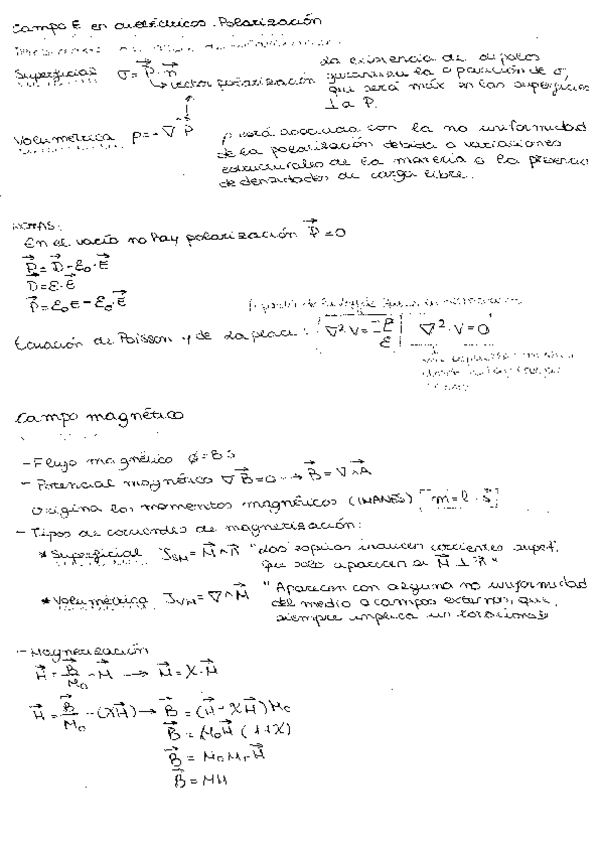 Campo E en dieléctricos. Polarización
Superficial σ = P · n
vector polarización
La existencia de dipolos
garantiza la aparición de σ,
que será máx en las superficies
⊥ a P.
Volumétrica ρ = -∇ P
ρ está asociada con la no uniformidad
de la polarización debida a variaciones
estructurales de la materia o la presencia
de densidades de carga libre.
NOTAS:
En el vacío no hay polarización P = 0
P = D - ε₀ · E
D = ε · E
P = ε₀E - ε₀ · E
Ecuación de Poisson y de Laplace: ∇² V = -ρ/ε ∇² · V = 0
Campo magnético
- Flujo magnético φ = B S
- Potencial magnético ∇ B = 0 → B = ∇ ∧ A
Origina los momentos magnéticos (IMANES) m = I · S
- Tipos de corrientes de magnetización:
* Superficial J_SM = M ∧ n "Las espiras inducen corrientes superf.
que solo aparecen si M ⊥ n"
* Volumétrica J_VM = ∇ ∧ M "Aparecen con alguna no uniformidad
del medio o campos externos, que
siempre implica un rotacional"
- Magnetización
H = B/M₀ - M → M = X · H
H = B/M₀ - (XH) → B = (H - XH) M₀
B = M₀H (1+X)
B = M₀ Mr H
B = MH